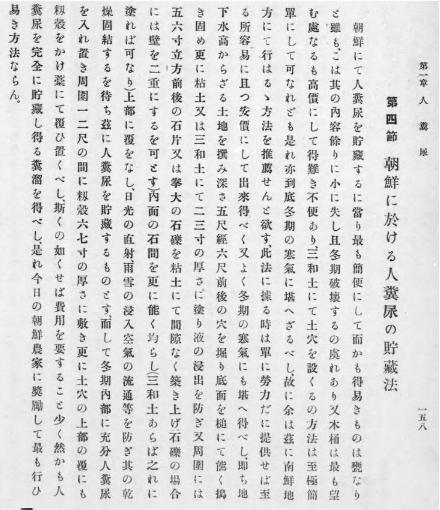 第一章 人糞尿
一五八
第四節 朝鮮に於ける人糞尿の貯藏法
朝鮮にて人糞尿を貯藏するに當り最も簡便にして而かも得易きものは甕なり
と雖も、こは其の內容餘りに小に失し且冬期破壞するの虞れあり又木桶は最も望
む處なるも高價にして得難き不便あり、三和土にて土穴を設くるの方法は至極簡
單にして可なれども是れ亦到底冬期の寒氣に堪へざるべし、故に余は玆に南鮮地
方にて行はるゝ方法を推薦せんと欲す、此法に據る時は單に勞力だに提供せば至
る所容易に且つ安價にして出來得べく又よく冬期の寒氣にも堪へ得べし、卽ち地
下水高からざる土地を撰み深さ五尺經六尺前後の穴を掘り底面を槌にて能く搗
き固め更に粘土又は三和土にて二三寸の厚さに塗り液の浸出を防ぎ又周圍には
五六寸立方前後の石片又は拳大の石礫を粘土にて間隙なく築き上げ(石礫の場合
には壁を二重にするを可とす)內面の石間を更に能く均らし(三和土あらば之れに
塗れば可なり)上部に覆をなし、日光の直射、雨雪の浸入空氣の流通等を防ぎ其の乾
燥固結するを待ち玆に人糞尿を貯藏するものとす、而して冬期內部に充分人糞尿
を入れ置き周圍一二尺の間に籾殼六七寸の厚さに敷き更に土穴の上部の覆にも
籾殼をかけ藁にて覆ひ置くべし、斯くの如くせば費用を要すること少く然かも人
糞尿を完全に貯藏し得る糞溜を得べし、是れ今日の朝鮮農家に奬勵して最も行ひ
易き方法ならん。